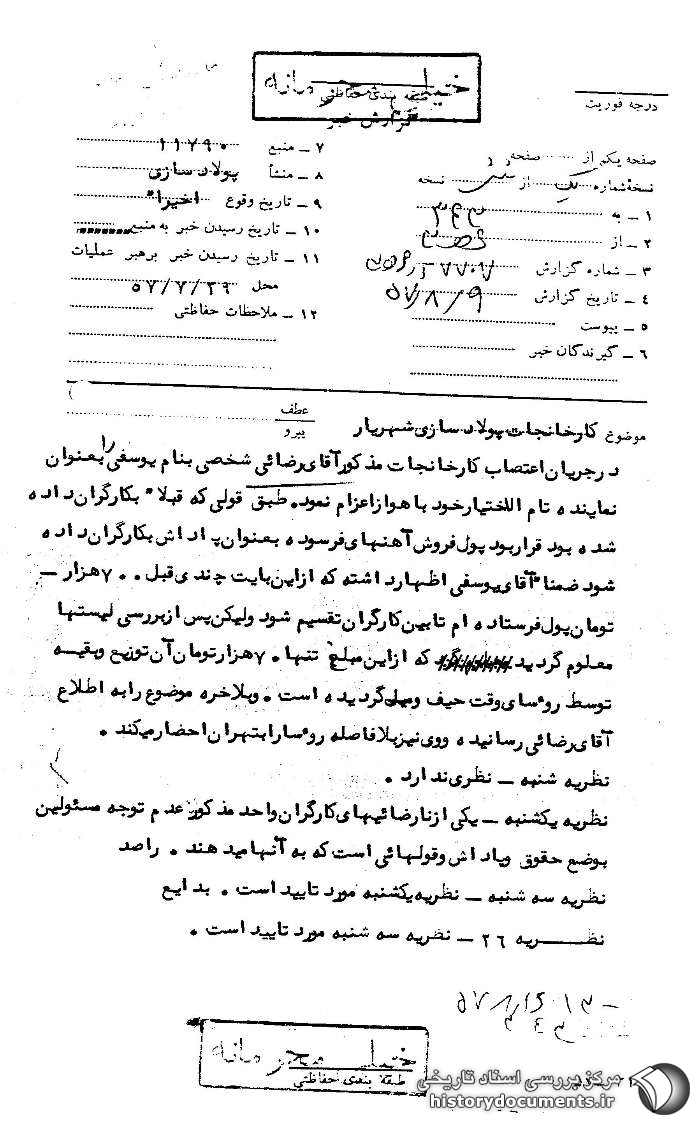 خیلی محرمانه
طبقه بندی حفاظتی
گزارش خبر
درجه فوریت
صفحه یکم از صفحه
نسخه شماره یک از نسخه
۱ ـ به ۳۴۳
۲ ـ از
۳ ـ شماره گزارش
۴ ـ تاریخ گزارش ۵۷/۸/۹
۵ ـ پیوست
۶ ـ گیرندگان خبر
۷ ـ منبع ۱۱۷۹۰
۸ ـ منشأ پولاد سازی
۹ ـ تاریخ وقوع اخیرا"
۱۰ ـ تاریخ رسیدن خبر به منبع
۱۱ ـ تاریخ رسیدن خبر برهبر عملیات
محل ۵۷/۷/۲۹
۱۲ ـ ملاحظات حفاظتی
موضوع کارخانجات پولاد سازی شهریار
عطف
پیرو
در جریان اعتصاب کارخانجات مذکور آقای رضائی شخصی بنام یوسفی را بعنوان
نماینده تام الاختیار خود باهواز اعزام نمود. طبق قولی که قبلا" بکارگران داده
شده بود قرار بود پول فروش آهنهای فرسوده بعنوان پاداش بکارگران داده
شود ضمنا" آقای یوسفی اظهار داشته که از این بابت چندی قبل ۷۰۰ هزار ـ
تومان پول فرستاده ام تا بین کارگران تقسیم شود ولیکن پس از بررسی لیستها
معلوم گردید که از این مبلغ تنها ۷۰ هزار تومان آن توزیع و بقیه
توسط روسای وقت حیف و میل گردیده است. وبلاخره موضوع را به اطلاع
آقای رضائی رسانیده و وی نیز بلافاصله روسا را بتهران احضار میکند.
نظریه شنبه ـ نظری ندارد.
نظریه یکشنبه ـ یکی از نارضائیهای کارگران واحد مذکور عدم توجه مسئولین
بوضع حقوق و پاداش و قولهائی است که به آنها میدهند. راصد
نظریه سه شنبه ـ نظریه یکشنبه مورد تایید است. بدایع
نظـــریه ۲۶ ـ نظریه سه شنبه مورد تایید است.
خیلی محرمانه
طبقه بندی حفاظتی
مرکز بررسی اسناد تاریخی
historydocuments.ir